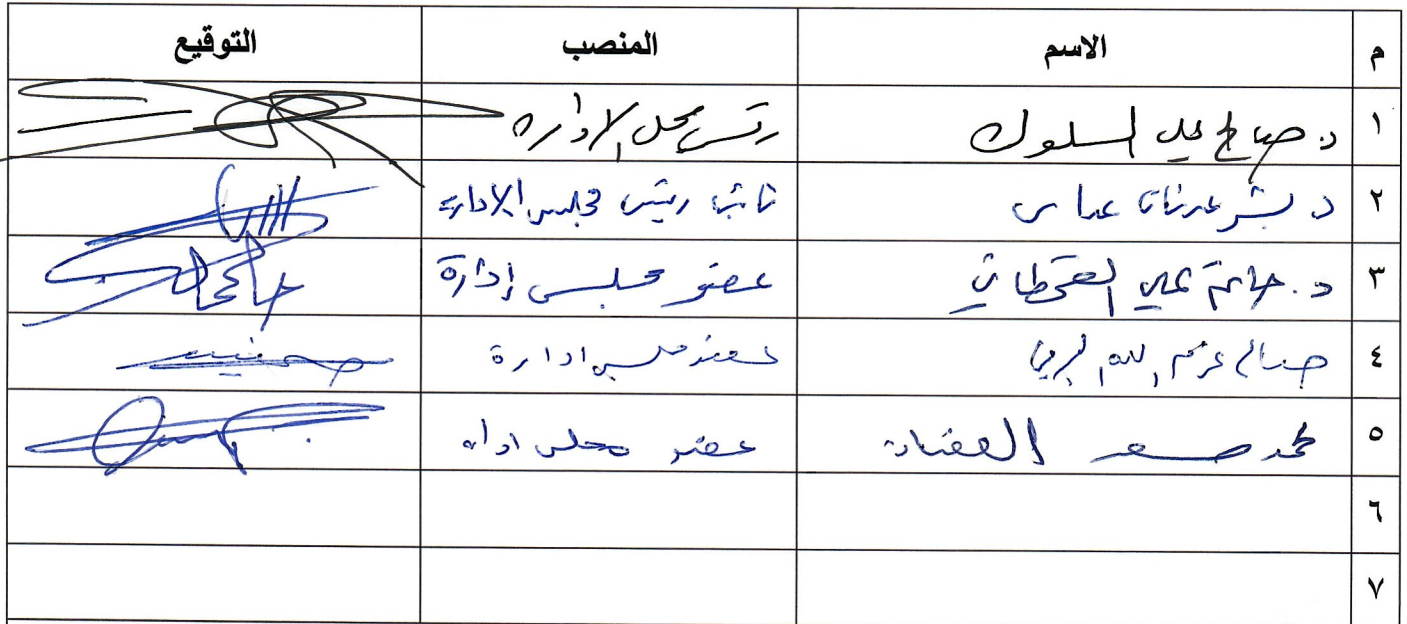 م الاسم المنصب التوقيع
١ د. صالح علي السلوك رئيس مجلس الإداره
٢ د. بشر عدنان عباس نائب رئيس مجلس الإدارة
٣ د. حاتم علي القحطاني عضو مجلس إدارة
٤ صالح عرم الله عضو مجلس ادارة
٥ محمد سعد عضو مجلس اداره
٦
٧